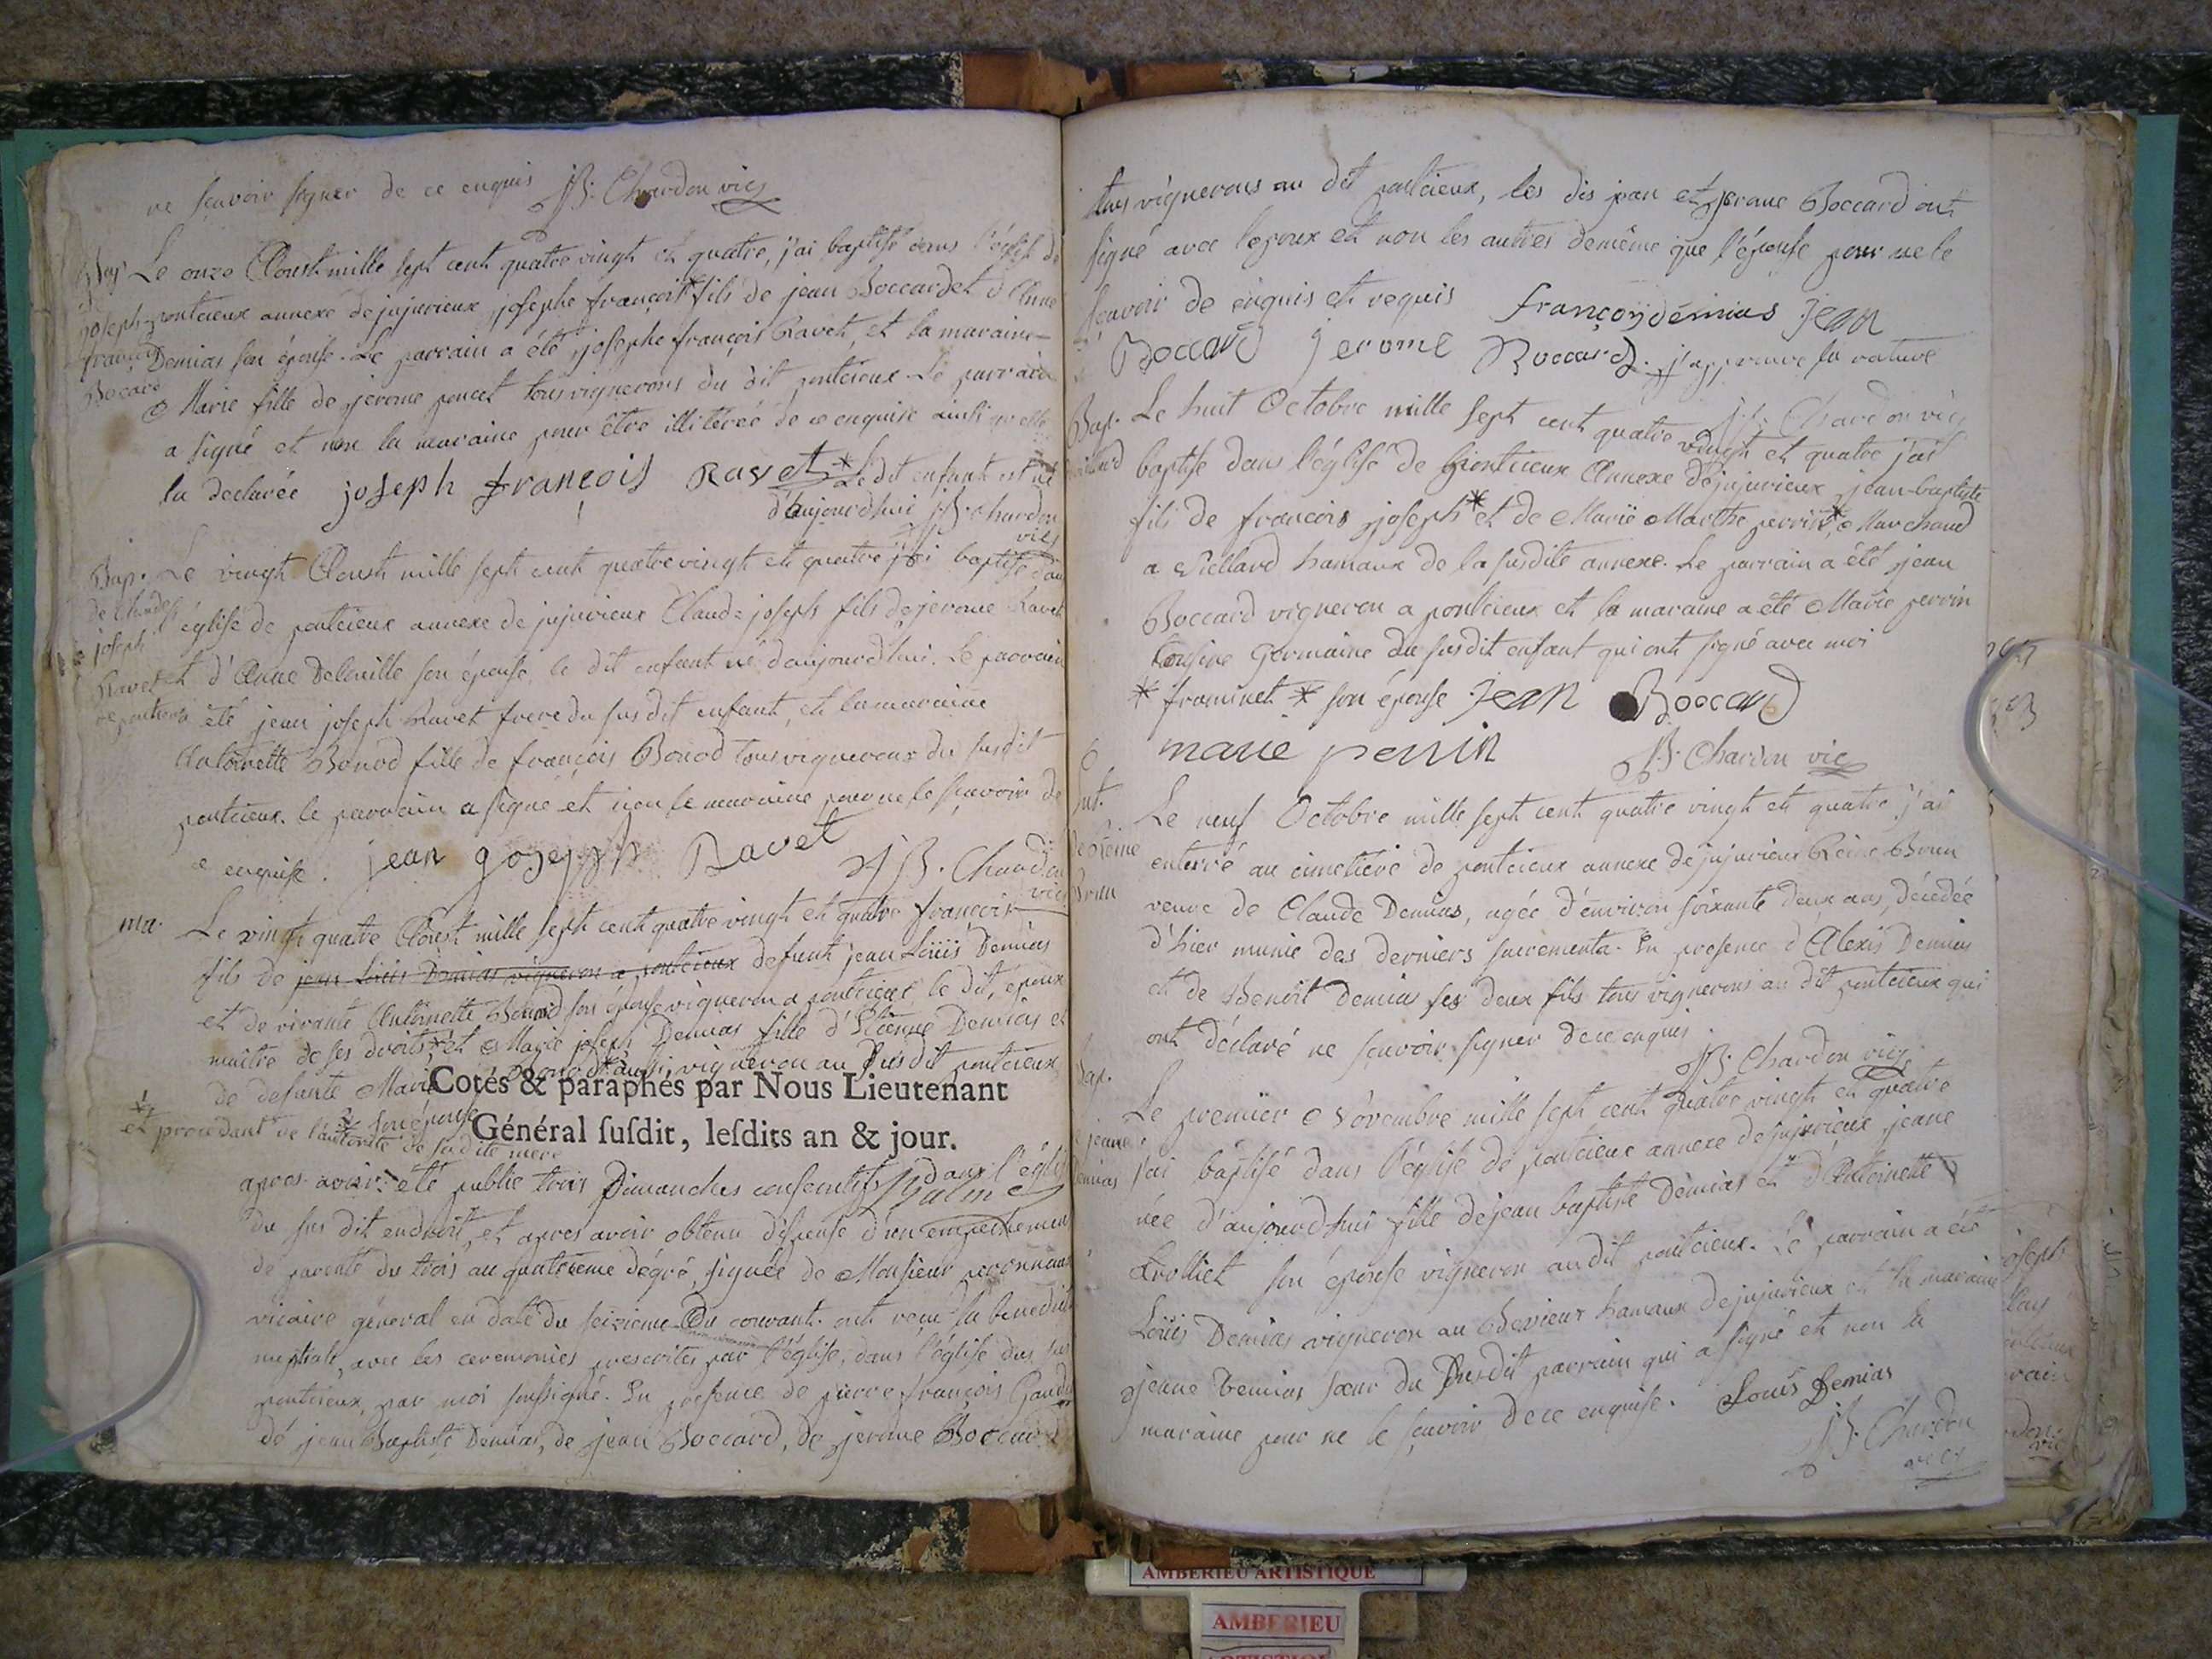 ne sçavoir signer de ce enquis JB. Chardon vic
Bap. Le onze Aoust mille sept cent quatre vingt et quatre, j'ai baptisé dans l'église de
joseph pontcieux annexe de jujurieux, josephe françois* fils de jean Boccard et d'Anne
françois Demias son épouse. Le parrain a été josephe françois Ravet, et la maraine
Bocard Marie fille de jerome poncet tous vignerons du dit pontcieux. Le parrain
a signé et non la maraine pour être illiterée de ce enquise ainsi qu'elle
la declarée joseph françois Ravet * Le dit enfant est né
d'aujourd'hui JB. chardon
vic
Bap. Le vingt Aoust mille sept cent quatre vingt et quatre j'ai baptisé dans
de Claude l'église de pontcieux annexe de jujurieux Claude joseph fils de jerome Ravet
joseph
Ravet et d'Anne son épouse, le dit enfant né d'aujourd'hui. Le parrain
été jean joseph Ravet frere du susdit enfant, et la maraine
Antoinette Bonod fille de françois Bonod tous vignerons du susdit
pontcieux. le parrain a signé et non la maraine pour ne le sçavoir de
ce enquise. jean goseph Ravet
JB. Chardon
vic
ma. Le vingt quatre Aoust mille sept cent quatre vingt et quatre françois
fils de jean Loüis Demias vigneron a pontcieux defunt jean Loüis Demias
et de vivante Antoinette Bonod son épouse vigneron a pontcieux, le dit, epoux
maître de ses droits,* et Marie joseph Demias fille d'Etienne Demias et
de defunte Marie Bonod* aussi vigneron au susdit pontcieux
Cotés & paraphés par Nous Lieutenant
* et procedant de l'autorité de sa dite mere
* son épouse
Général susdit, lesdits an & jour.
apres avoir été publié trois Dimanches consecutifs dans l'église
du sus dit endroit, et apres avoir obtenu dispense d'un empechement
de parenté du trois au quatrieme dégré, signée de Monsieur
vicaire général en date du seizieme du courant. ont reçu la benediction
nuptiale, avec les ceremonies prescrites par l'église, dans l'église du
pontcieux, par moi soussigné. En presence de pierre françois
de jean Baptiste Demias, de jean Boccard, de jerome Boccard
tous vignerons au dit pontcieux, les dis jean et jerome Boccard ont
signé avec l'epoux et non les autres demême que l'épouse pour ne le
sçavoir de enquis et requis françois démias jean
Boccard jerome Boccard. j'approuve la rature
JB. Chardon vic
Bap. Le huit Octobre mille sept cent quatre vingt et quatre j'ai
baptisé dans l'église de pontcieux Annexe de jujurieux, jean-baptiste
fils de françois joseph* et de Marie Marthe perrin*, Marchand
a Viellard hamaux de la susdite annexe. Le parrain a été jean
Boccard vigneron a pontcieux et la maraine a été Marie perrin
Cousine Germaine du susdit enfant qui ont signé avec moi
* framinet * son épouse jean Boccard
marie perrin
JB. Chardon vic
Le neuf Octobre mille sept cent quatre vingt et quatre j'ai
enterré au cimetiere de pontcieux annexe de jujurieux Reine Brun
veuve de Claude Demias, agée d'environ soixante deux ans, décédée
d'hier munie des derniers sacrements. En presence d'Alexis Demias
et de Benoît Demias ses deux fils tous vignerons au dit pontcieux qui
ont déclaré ne sçavoir signer de ce enquis.
JB. Chardon vic
Bap.
Le premier Novembre mille sept cent quatre vingt et quatre
jeane j'ai baptisé dans l'église de pontcieux annexe de jujurieux jeane
Demias née d'aujourd'hui fille de jean baptiste Demias et d'Antoinette
Trolliet son épouse vigneron au dit pontcieux. Le parrain a été
Loüis Demias vigneron au Bessieux hamaux de jujurieux et la maraine
jeane Demias sœur du susdit parrain qui a signé et non la
maraine pour ne le sçavoir de ce enquise. Louis Demias
JB. Chardon
vic
AMBERIEU ARTISTIQUE
AMBERIEU